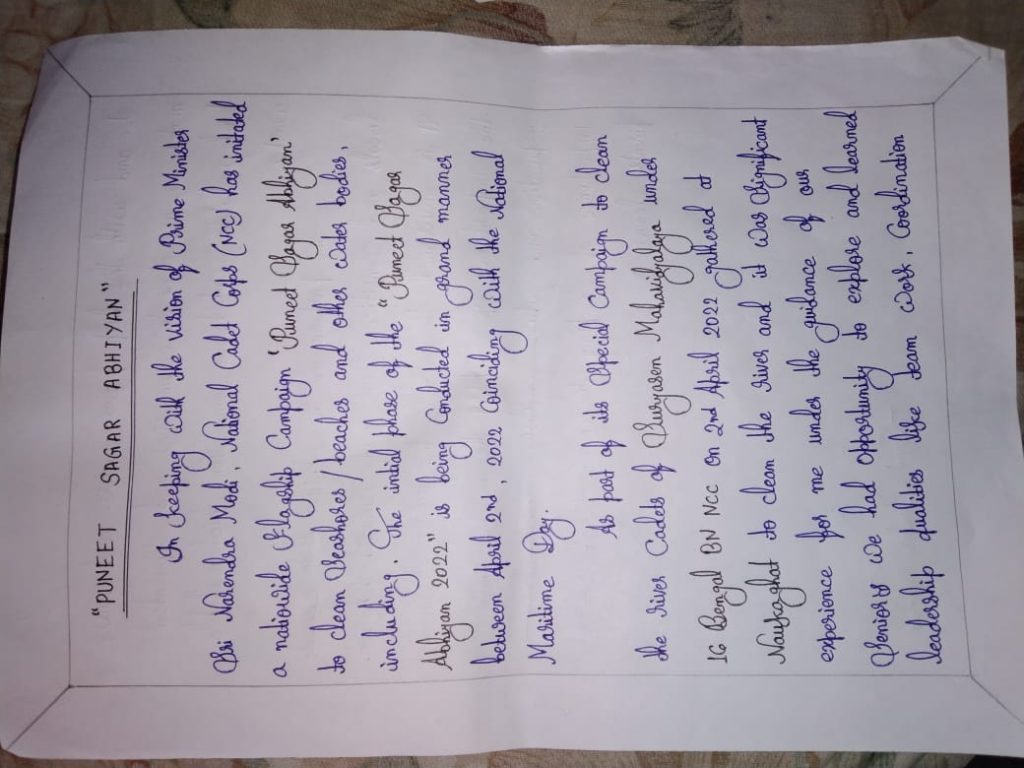 "PUNEET SAGAR ABHIYAN"
In keeping with the vision of Prime Minister
Shri Narendra Modi, National Cadet Corps (NCC) has initated
a natiowide Flagship Campaign "Puneet Sagar Abhiyan'
to clean Seashores/beaches and other water bodies,
including. The initial phase of the "Puneet Sagar
Abhiyan 2022" is being Conducted in grand manner
between April 2nd, 2022 Coinciding with the National
Maritime Day.
As part of its Special Campaign to clean
the river Cadets of Suryasen Mahavidyalaya under
16 Bengal BN NCC on 2nd April 2022 gathered at
Naukaghat to clean the river and it was Significant
experience for me under the guidance of our
Seniors we had opportunity to explore and learned
leadership qualities like team work, Coordination